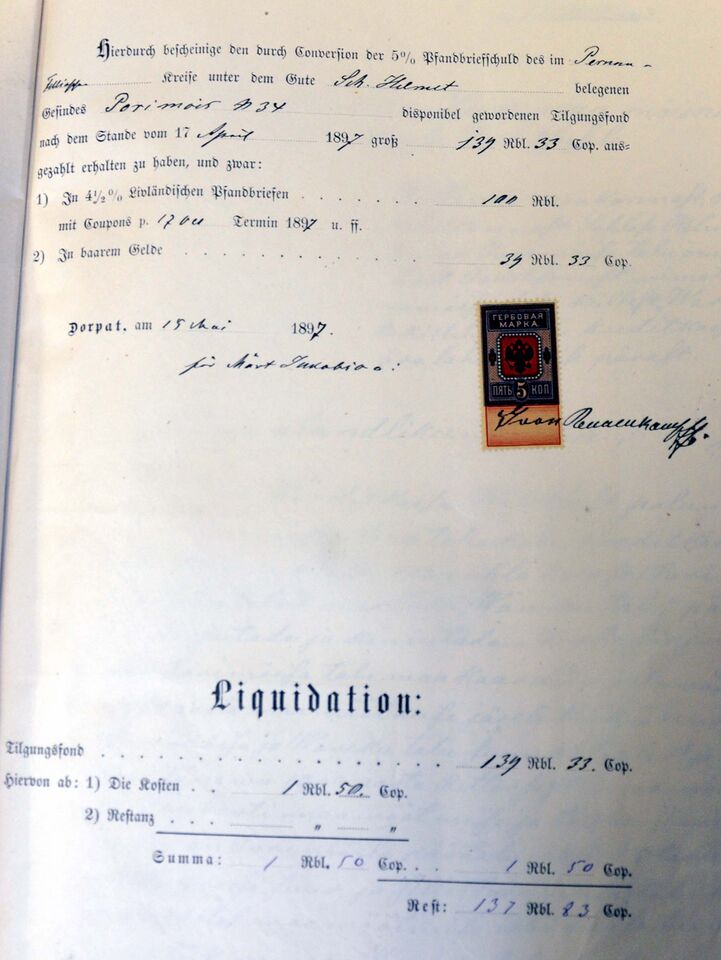 Hierdurch bescheinige den durch Conversion der 5% Pfandbriefschuld des im Pernau-
Kreise unter dem Gute Sch. Helmet belegenen
Gesindes Porimois № 34 disponibel gewordenen Tilgungsfond
nach dem Stande vom 17 April 1897 groß 139 Rbl. 33 Cop. aus-
gezahlt erhalten zu haben, und zwar:
1) In 4½% Livländischen Pfandbriefen . . . . . . . 100 Rbl.
mit Coupons p. 17 Oct Termin 1897 u. ff.
2) In baarem Gelde . . . . . . . . . . . . . 39 Rbl. 33 Cop.
Dorpat, am 15 Mai 1897.
für Märt
ГЕРБОВАЯ
МАРКА
ПЯТЬ 5 КОП
Rennenkampff
Liquidation:
Tilgungsfond . . . . . . . . . . . . . . . . . . . 139 Rbl. 33. Cop.
Hiervon ab: 1) Die Kosten . . 1 Rbl. 50. Cop.
2) Restanz . . . „ „
Summa: 1 Rbl. 50 Cop. . . 1 Rbl. 50 Cop.
Rest: 137 Rbl. 83 Cop.